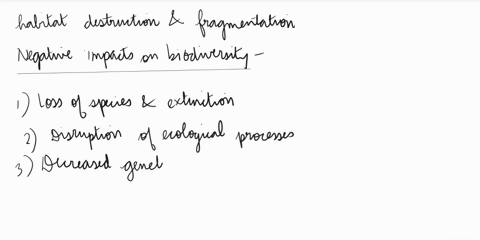 habitat destruction & fragmentation
Negative impacts on biodiversity -
1) Loss of species & extinition
2) Disruption of ecological processes
3) Decreased genel